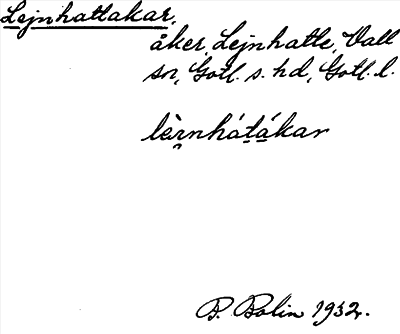 Lejnhattakar,
åker, Lejnhatte, Vall
sn, Gotl. s. hd, Gotl. l.
lèrnhátákar
B. Bolin 1932.